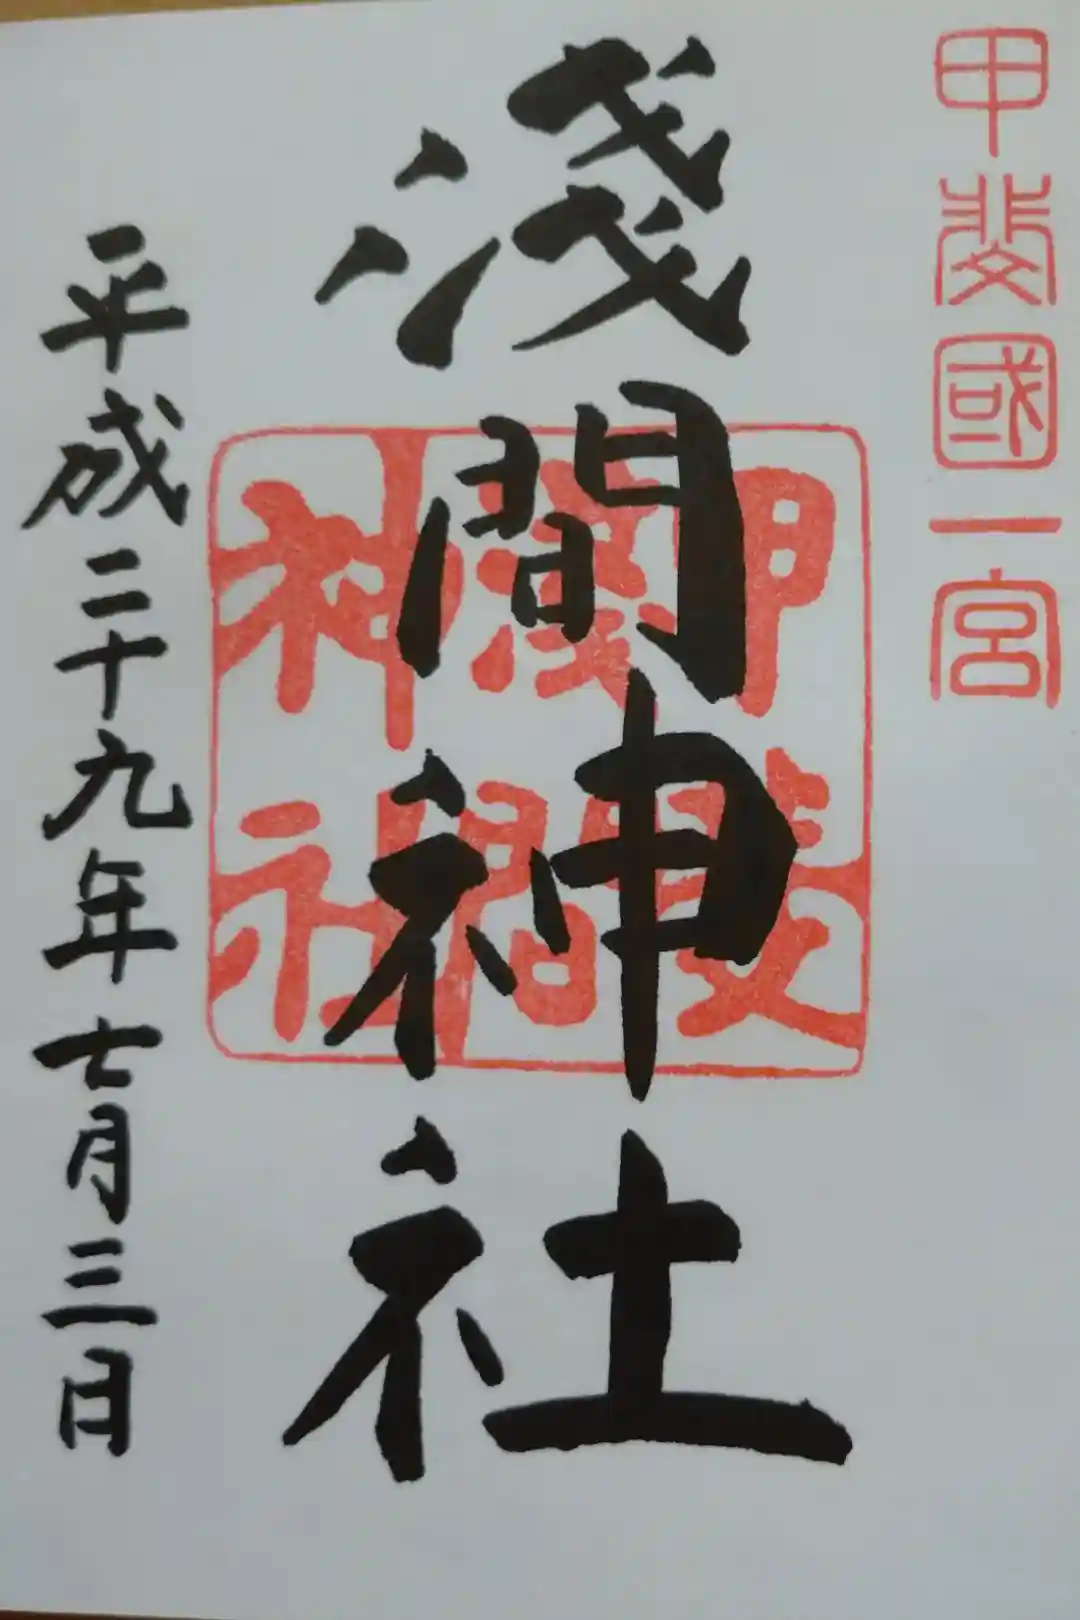 甲斐國一宮
淺間神社
甲斐
淺間
神社
平成二十九年七月三日